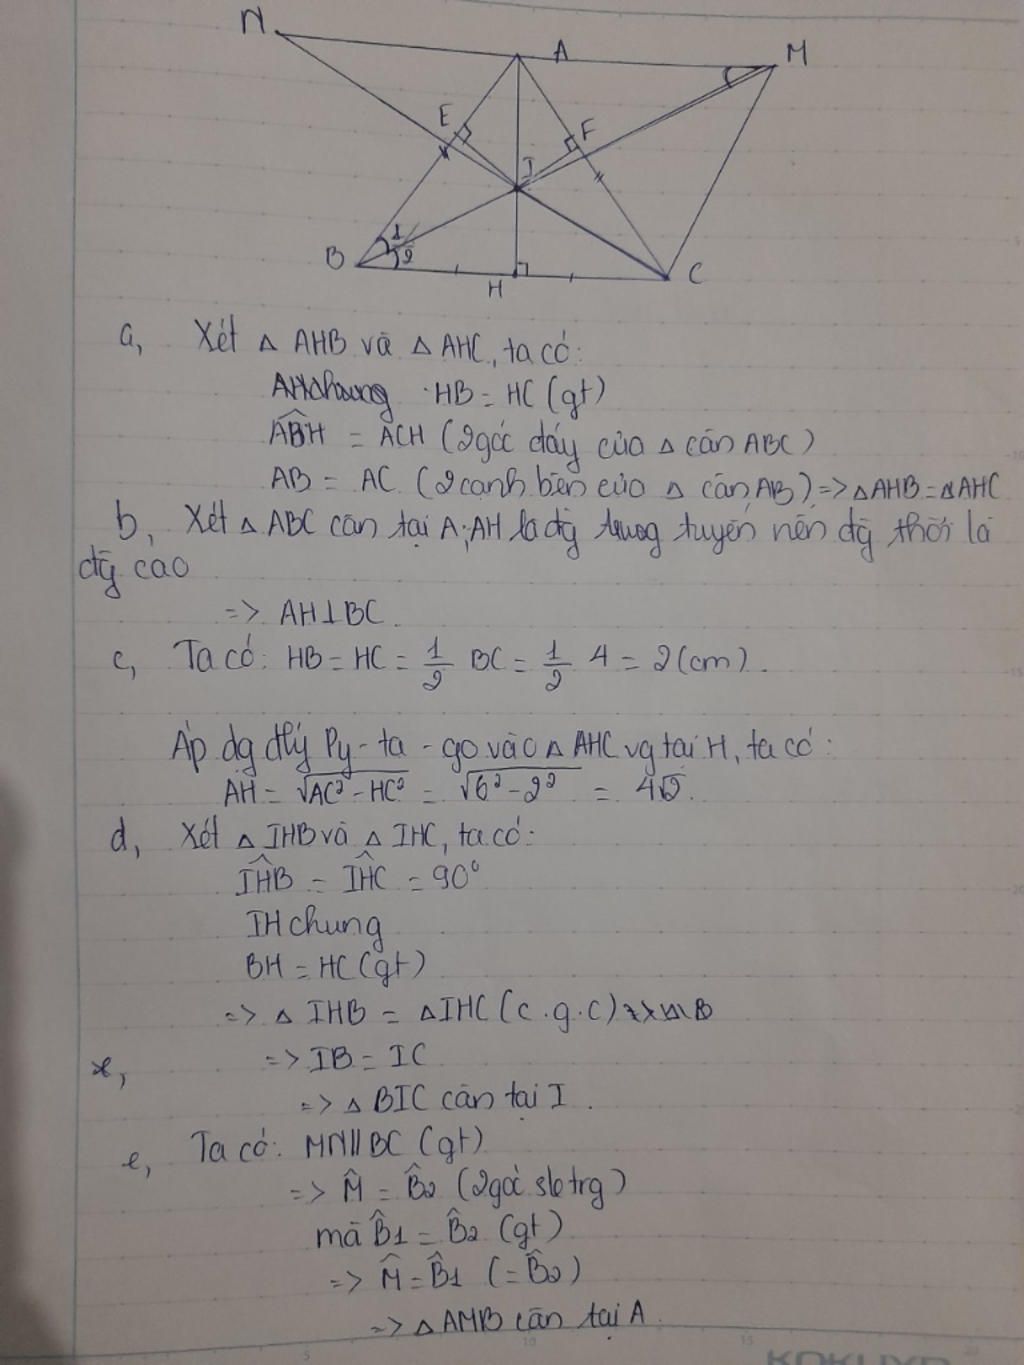 N
A
M
E
F
I
1
2
B
H
C
a, Xét △ AHB và △ AHC, ta có:
AH chung HB = HC (gt)
ABH = ACH (2 góc đáy của △ cân ABC)
AB = AC (2 cạnh bên của △ cân AB) => △AHB = △AHC
b, Xét △ ABC cân tại A; AH là đg trung tuyến nên đg thời là
đg cao
=> AH⊥BC.
c, Ta có: HB = HC = 1/2 BC = 1/2 4 = 2 (cm).
Áp dg đlý Py-ta-go vào △ AHC vg tại H, ta có:
AH = √AC² - HC² = √6² - 2² = 4√2.
d, Xét △ IHB và △ IHC, ta có:
IHB = IHC = 90°
IH chung
BH = HC (gt)
=> △ IHB = △IHC (c.g.c)
=> IB = IC
=> △ BIC cân tại I.
e, Ta có: MN//BC (gt)
=> M̂ = B̂2 (2 góc sle trg)
mà B̂1 = B̂2 (gt)
=> M̂ = B̂1 (= B̂2)
=> △AMB cân tại A.